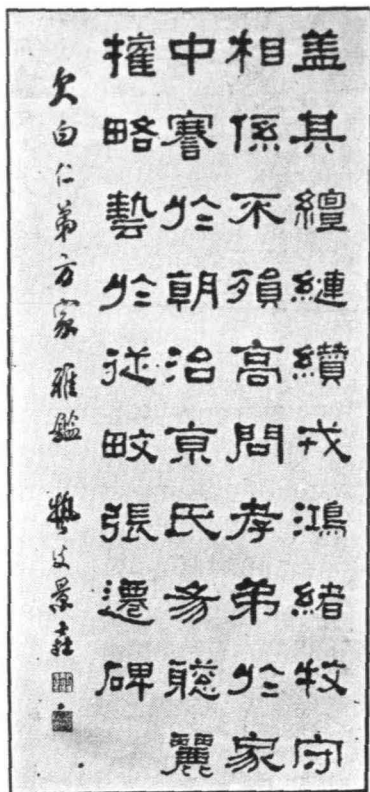 盖其繵縺纘戎鴻緒牧守
相係不殞高問孝弟於家
中謇於朝治京氏易聦麗
權略藝於從畋張遷碑
白仁弟方家雅鑑